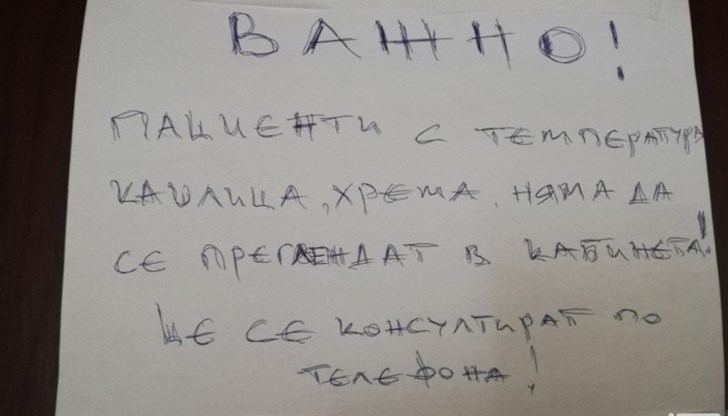 ВАЖНО!
ПАЦИЕНТИ С ТЕМПЕРАТУРА
КАШЛИЦА, ХРЕМА, НЯМА ДА
СЕ ПРЕГЛЕЖДАТ В КАБИНЕТА!
ЩЕ СЕ КОНСУЛТИРАТ ПО
ТЕЛЕФОНА!